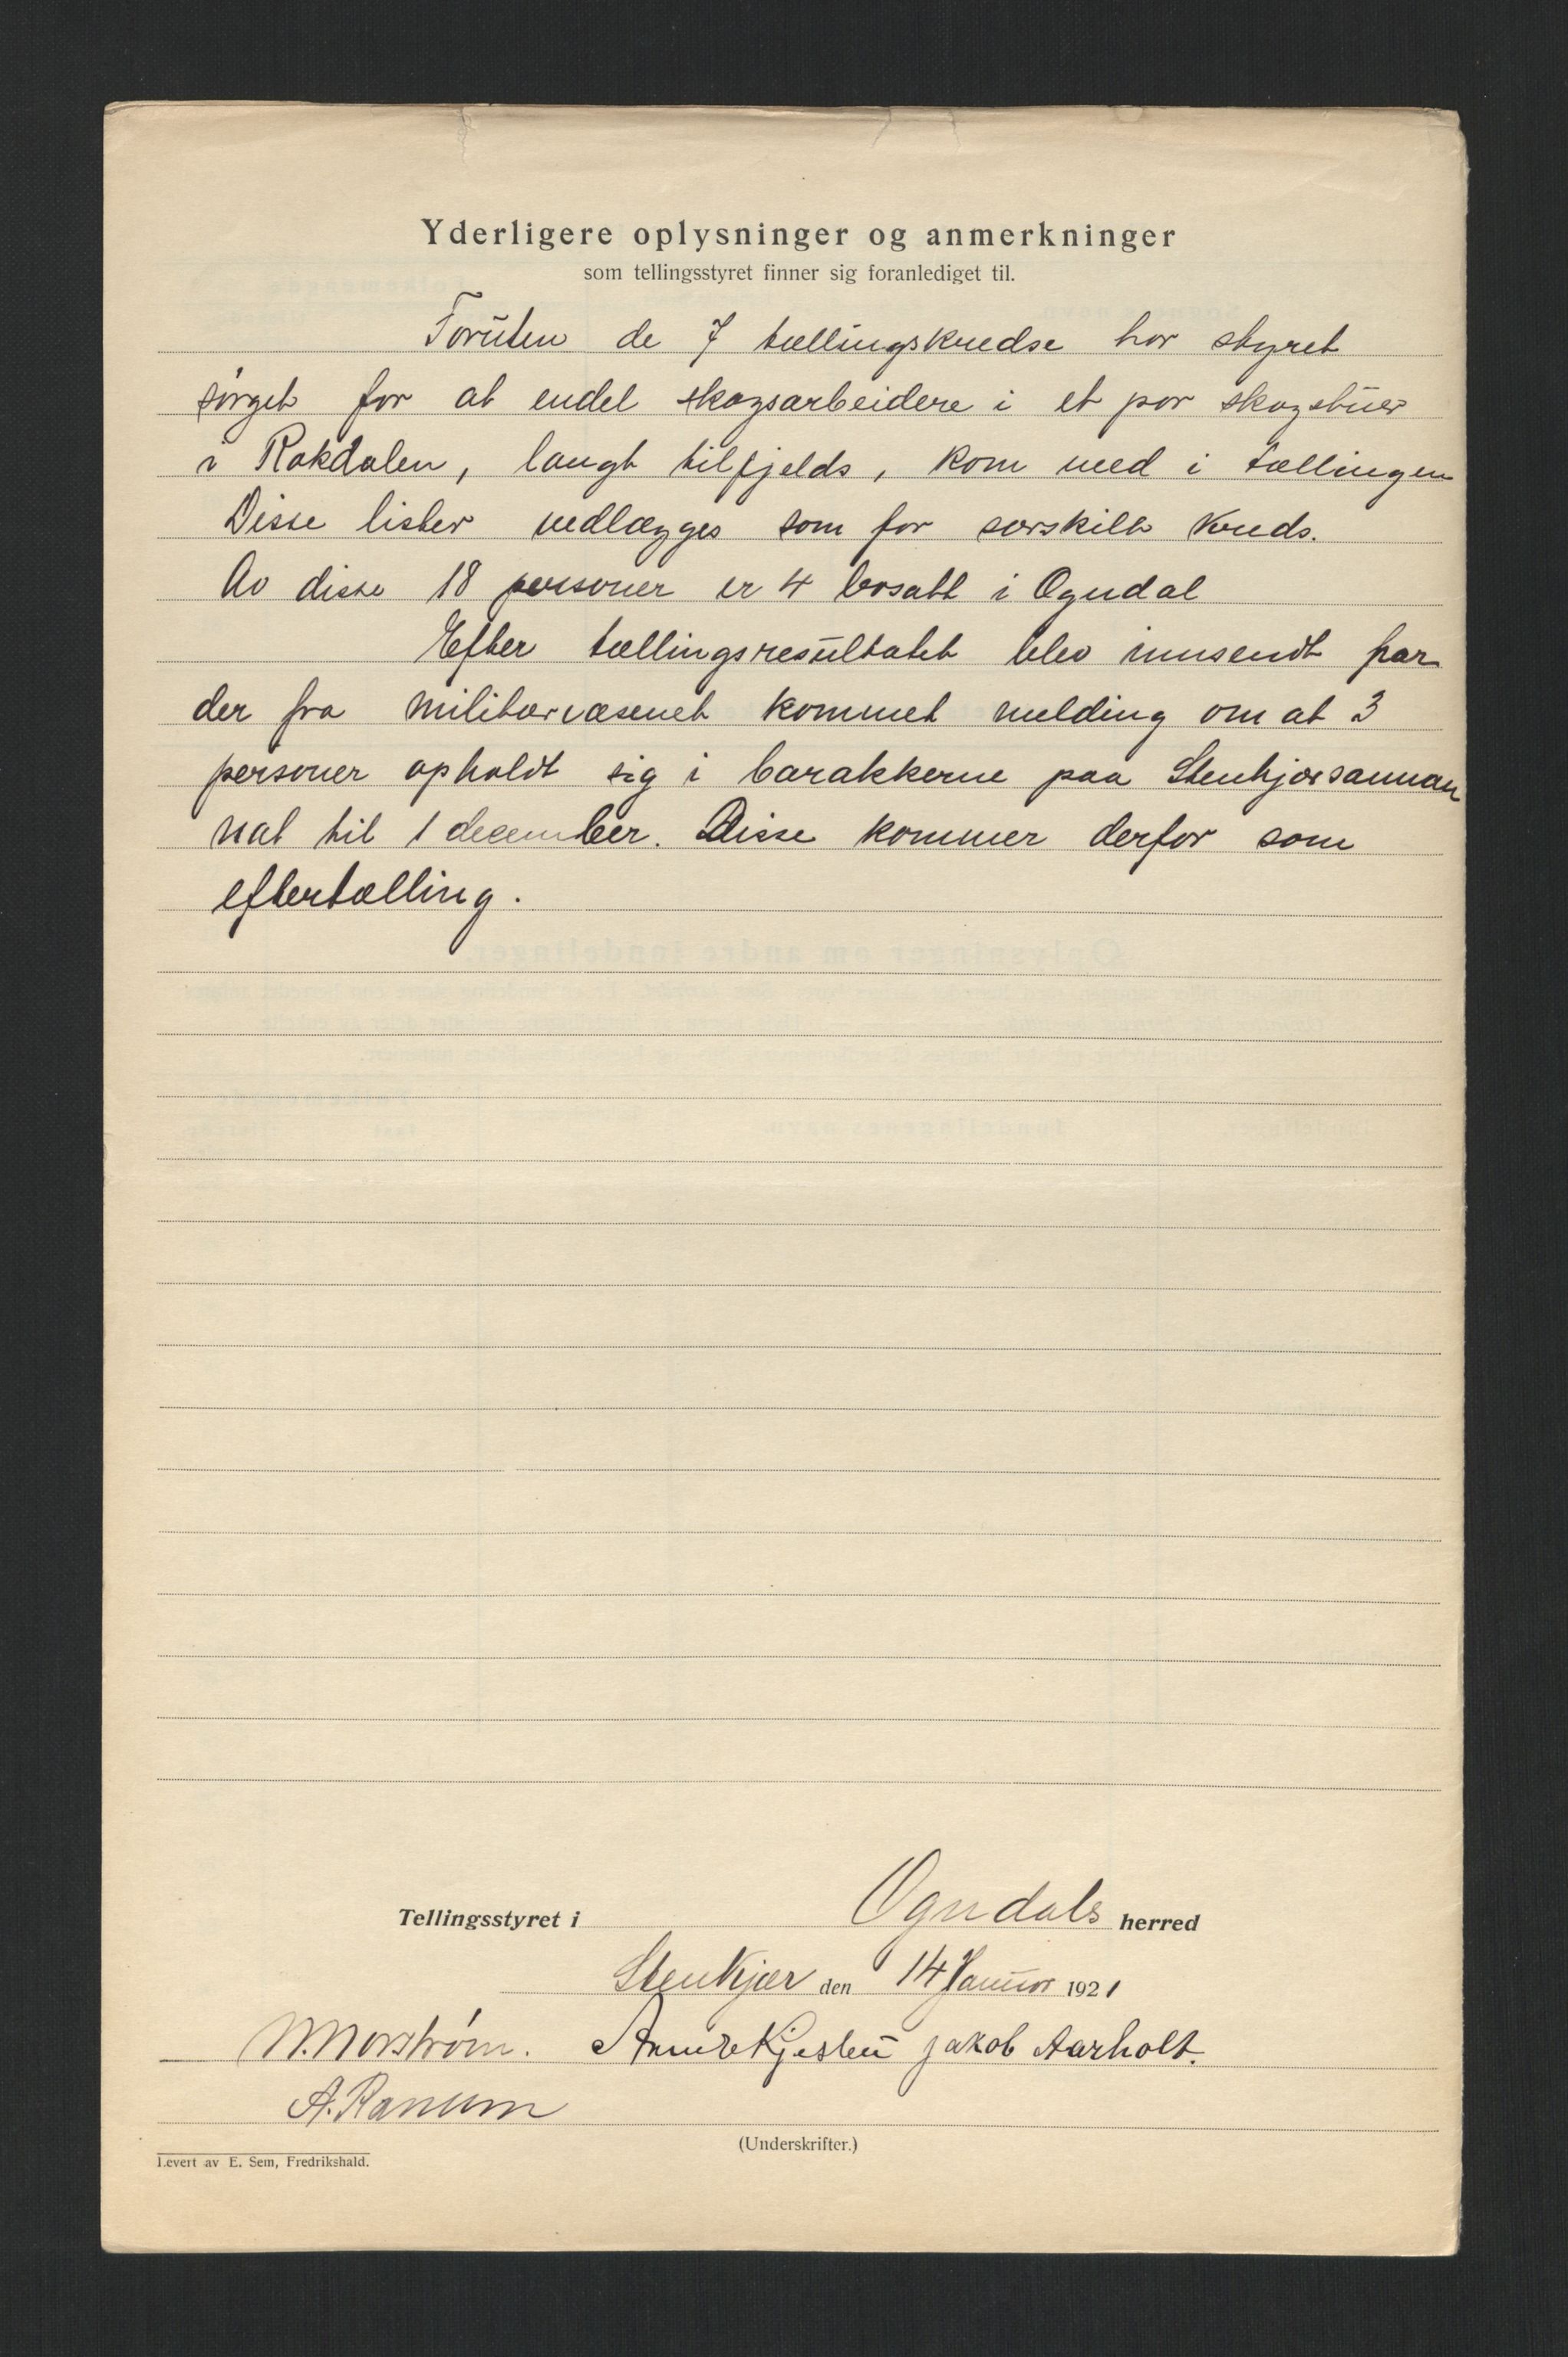 Yderligere oplysninger og anmerkninger
som tellingsstyret finner sig foranlediget til.
Foruten de 7 tællingskredse har styret
sörget for at endel skogsarbeidere i et par skogstuer
i Rokdalen, langt tilfjelds, kom med i tællingen
Disse lister vedlægges som for særskilt kreds.
Av disse 18 personer er 4 bosatt i Ogndal
Efter tællingsresultatet blev innsendt har
der fra militærvæsenet kommet melding om at 3
personer opholdt sig i barakkerne paa Stenkjærsannan
nat til 1 december. Disse kommer derfor som
eftertælling.
Tellingsstyret i Ogndals herred
Stenkjær den 14 Januar 1921
N. Morstrøm. Kjesbu Jakob Aarholt.
A. Ranum
(Underskrifter.)
Levert av E. Sem, Fredrikshald.